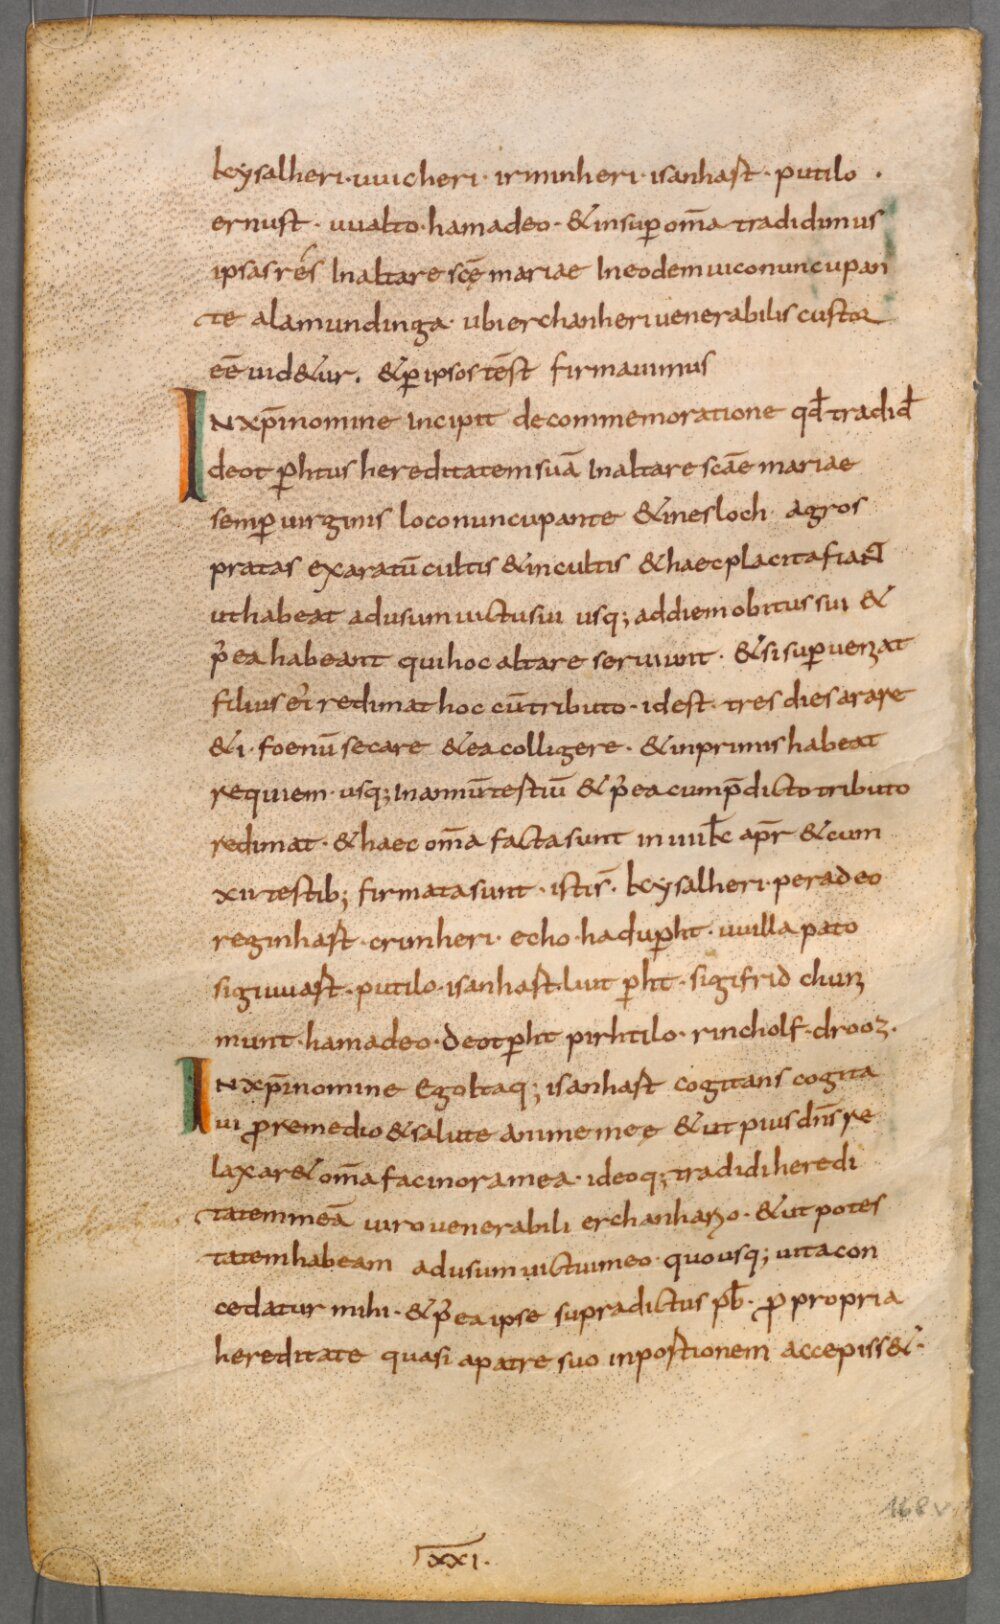 kysalheri · uuicheri · irminheri · isanhast · putilo ·
ernust · uualto · hamadeo · & insup̄ om̄a tradidimus
ipsas res In altare scē mariae In eodem uico nuncupan
te alamundinga · ubi erchanheri uenerabilis custor
eē uid&ur . & p̄ ipsos tēst firmauimus
IN xp̄i nomine Incipit de commemoratione qđ tradiđ
deotp̄htus hereditatem suā In altare scāe mariae
semp̄ uirginis loco nuncupante &inesloch · agros
pratas exaratū cultis & incultis & haec placita fiaNT
ut habeat ad usum uictu sui usq; ad diem obitus sui &
p̄ ea habeant qui hoc altare seruiunt · & si sup̄uenzat
filius ei redimat hoc cū tributo · id est · tres dies arare
& ·i· foenū secare & ea colligere · & inprimis habeat
requiem · usq; In annū tertiū & p̄ ea cum p̄dicto tributo
redimat · & haec om̄a facta sunt in iiii kƚ apr̄ & cum
xii testib; firmata sunt · istis̄ · kysalheri · peradeo
reginhast · crimheri · echo · hadup̄ht · uuilla pato
sigiuuast · putilo · isanhast · liutp̄ht · sigifrid chunz
munt · hamadeo · deotp̄ht pirhtilo · rincholf · drooz ·
IN xp̄i nomine Ego itaq; isanhast cogitans cogita
ui pro remedio & salute anime meę & ut pius dn̄s re
laxar& om̄a facinora mea · ideoq; tradidi heredi
tatem meā uiro uenerabili erchanharzo · & ut potes
tatem habeam ad usum uictui meo · quousq; uita con
cedatur mihi · & p̄ ea ipse supradictus pƀ · pro propria
hereditate quasi a patre suo in portionem accepiss& ·
168v
XXI ·